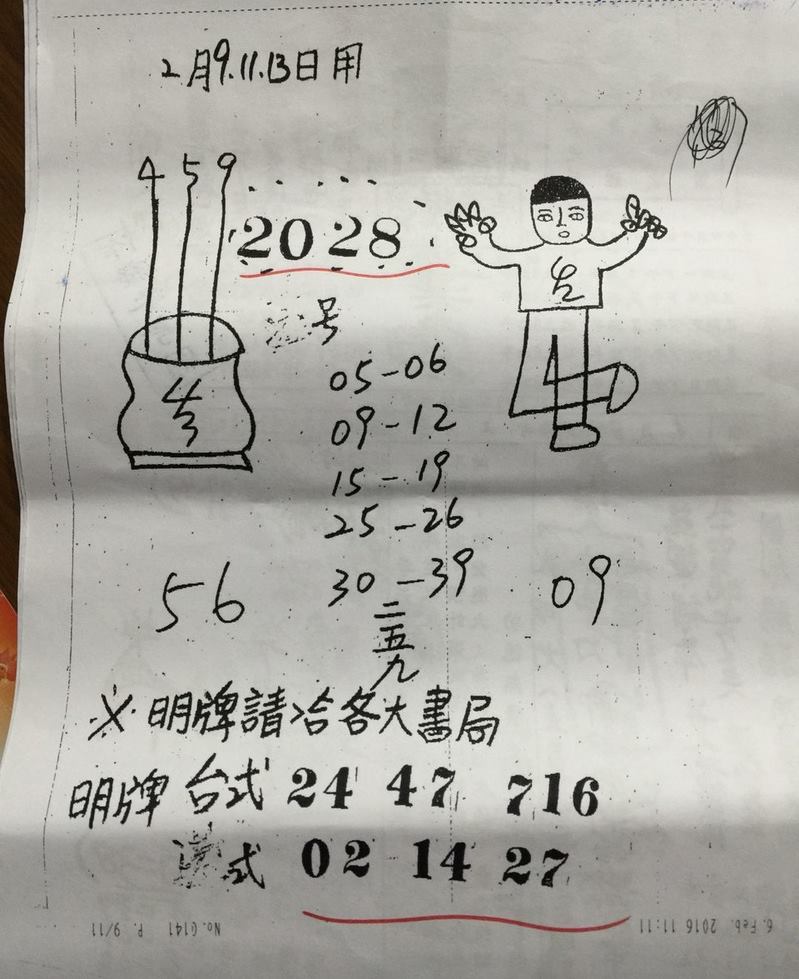 2月9.11.13日用
4 5 9
2028
号
05-06
09-12
15-19
25-26
30-39
56
09
二
五
九
※明牌請洽各大書局
明牌 台式 24 47 716
式 02 14 27
6. Feb. 2016 11:11
No. 0141 P. 9/11